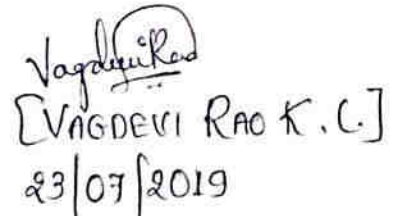 Vagdevi Rao
[VAGDEVI RAO K.C.]
23/07/2019